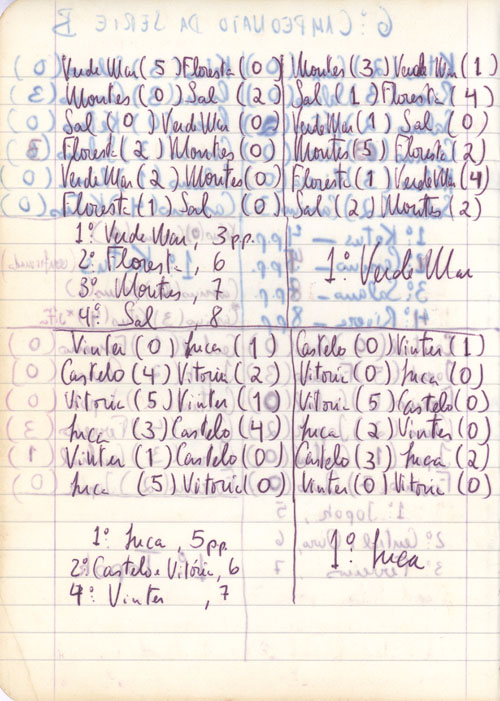 6º CAMPEONATO DA SÉRIE B
Verde Mar (5) Floresta (0) Montes (3) Verde Mar (1)
Montes (0) Sal (2) Sal (1) Floresta (4)
Sal (0) Verde Mar (0) Verde Mar (1) Sal (0)
Floresta (2) Montes (0) Montes (5) Floresta (2)
Verde Mar (2) Montes (0) Floresta (1) Verde Mar (4)
Floresta (1) Sal (0) Sal (2) Montes (2)
1º Verde Mar, 3 pp.
2º Floresta, 6
3º Montes, 7
4º Sal, 8
1º Verde Mar
Vinter (0) Juca (1) Castelo (0) Vinter (1)
Castelo (4) Vitória (2) Vitória (0) Juca (0)
Vitória (5) Vinter (10) Vitória (5) Castelo (0)
Juca (3) Castelo (4) Juca (2) Vinter (0)
Vinter (1) Castelo (0) Castelo (3) Juca (2)
Juca (5) Vitória (0) Vinter (0) Vitória (0)
1º Juca, 5 pp.
2º Castelo e Vitória, 6
4º Vinter, 7
1º Juca